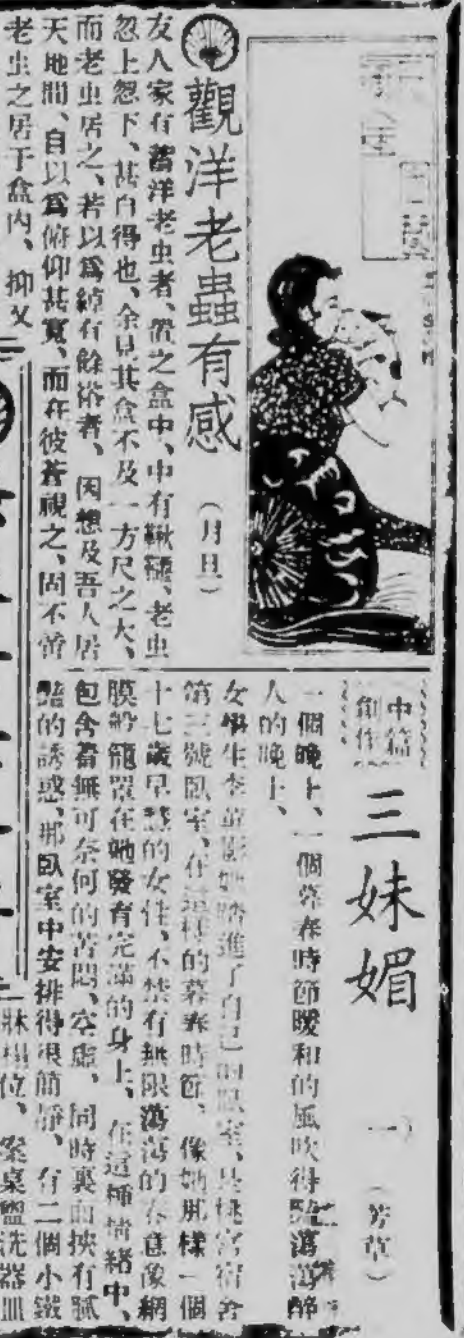 觀洋老蟲有感
（月旦）
友人家有蓄洋老虫者、置之盒中、中有鞦韆、老虫
忽上忽下、甚自得也、余見其盒不及一方尺之大、
而老虫居之、若以爲綽有餘裕者、因想及吾人居
天地間、自以爲俯仰甚寬、而在彼蒼視之、固不啻
老虫之居于盒內、抑又
中篇
創作
三妹媚
一
（芳草）
一個晚上、一個暮春時節暖和的風吹得 蕩蕩醉
人的晚上、
女學生李 影她踏進了自己的臥室、 桃宮宿舍
第三號臥室、在這樣的暮春時節、像她那樣一個
十七歲早慧的女性、不禁有無限蕩蕩的春意像網
膜般籠罩在她發育完滿的身上、在這種情緒中、
包含着無可奈何的苦悶、空虛、同時裏面挾有膩
豔的誘惑、那臥室中安排得很簡靜、有二個小鐵
牀榻位、案桌盥洗器皿